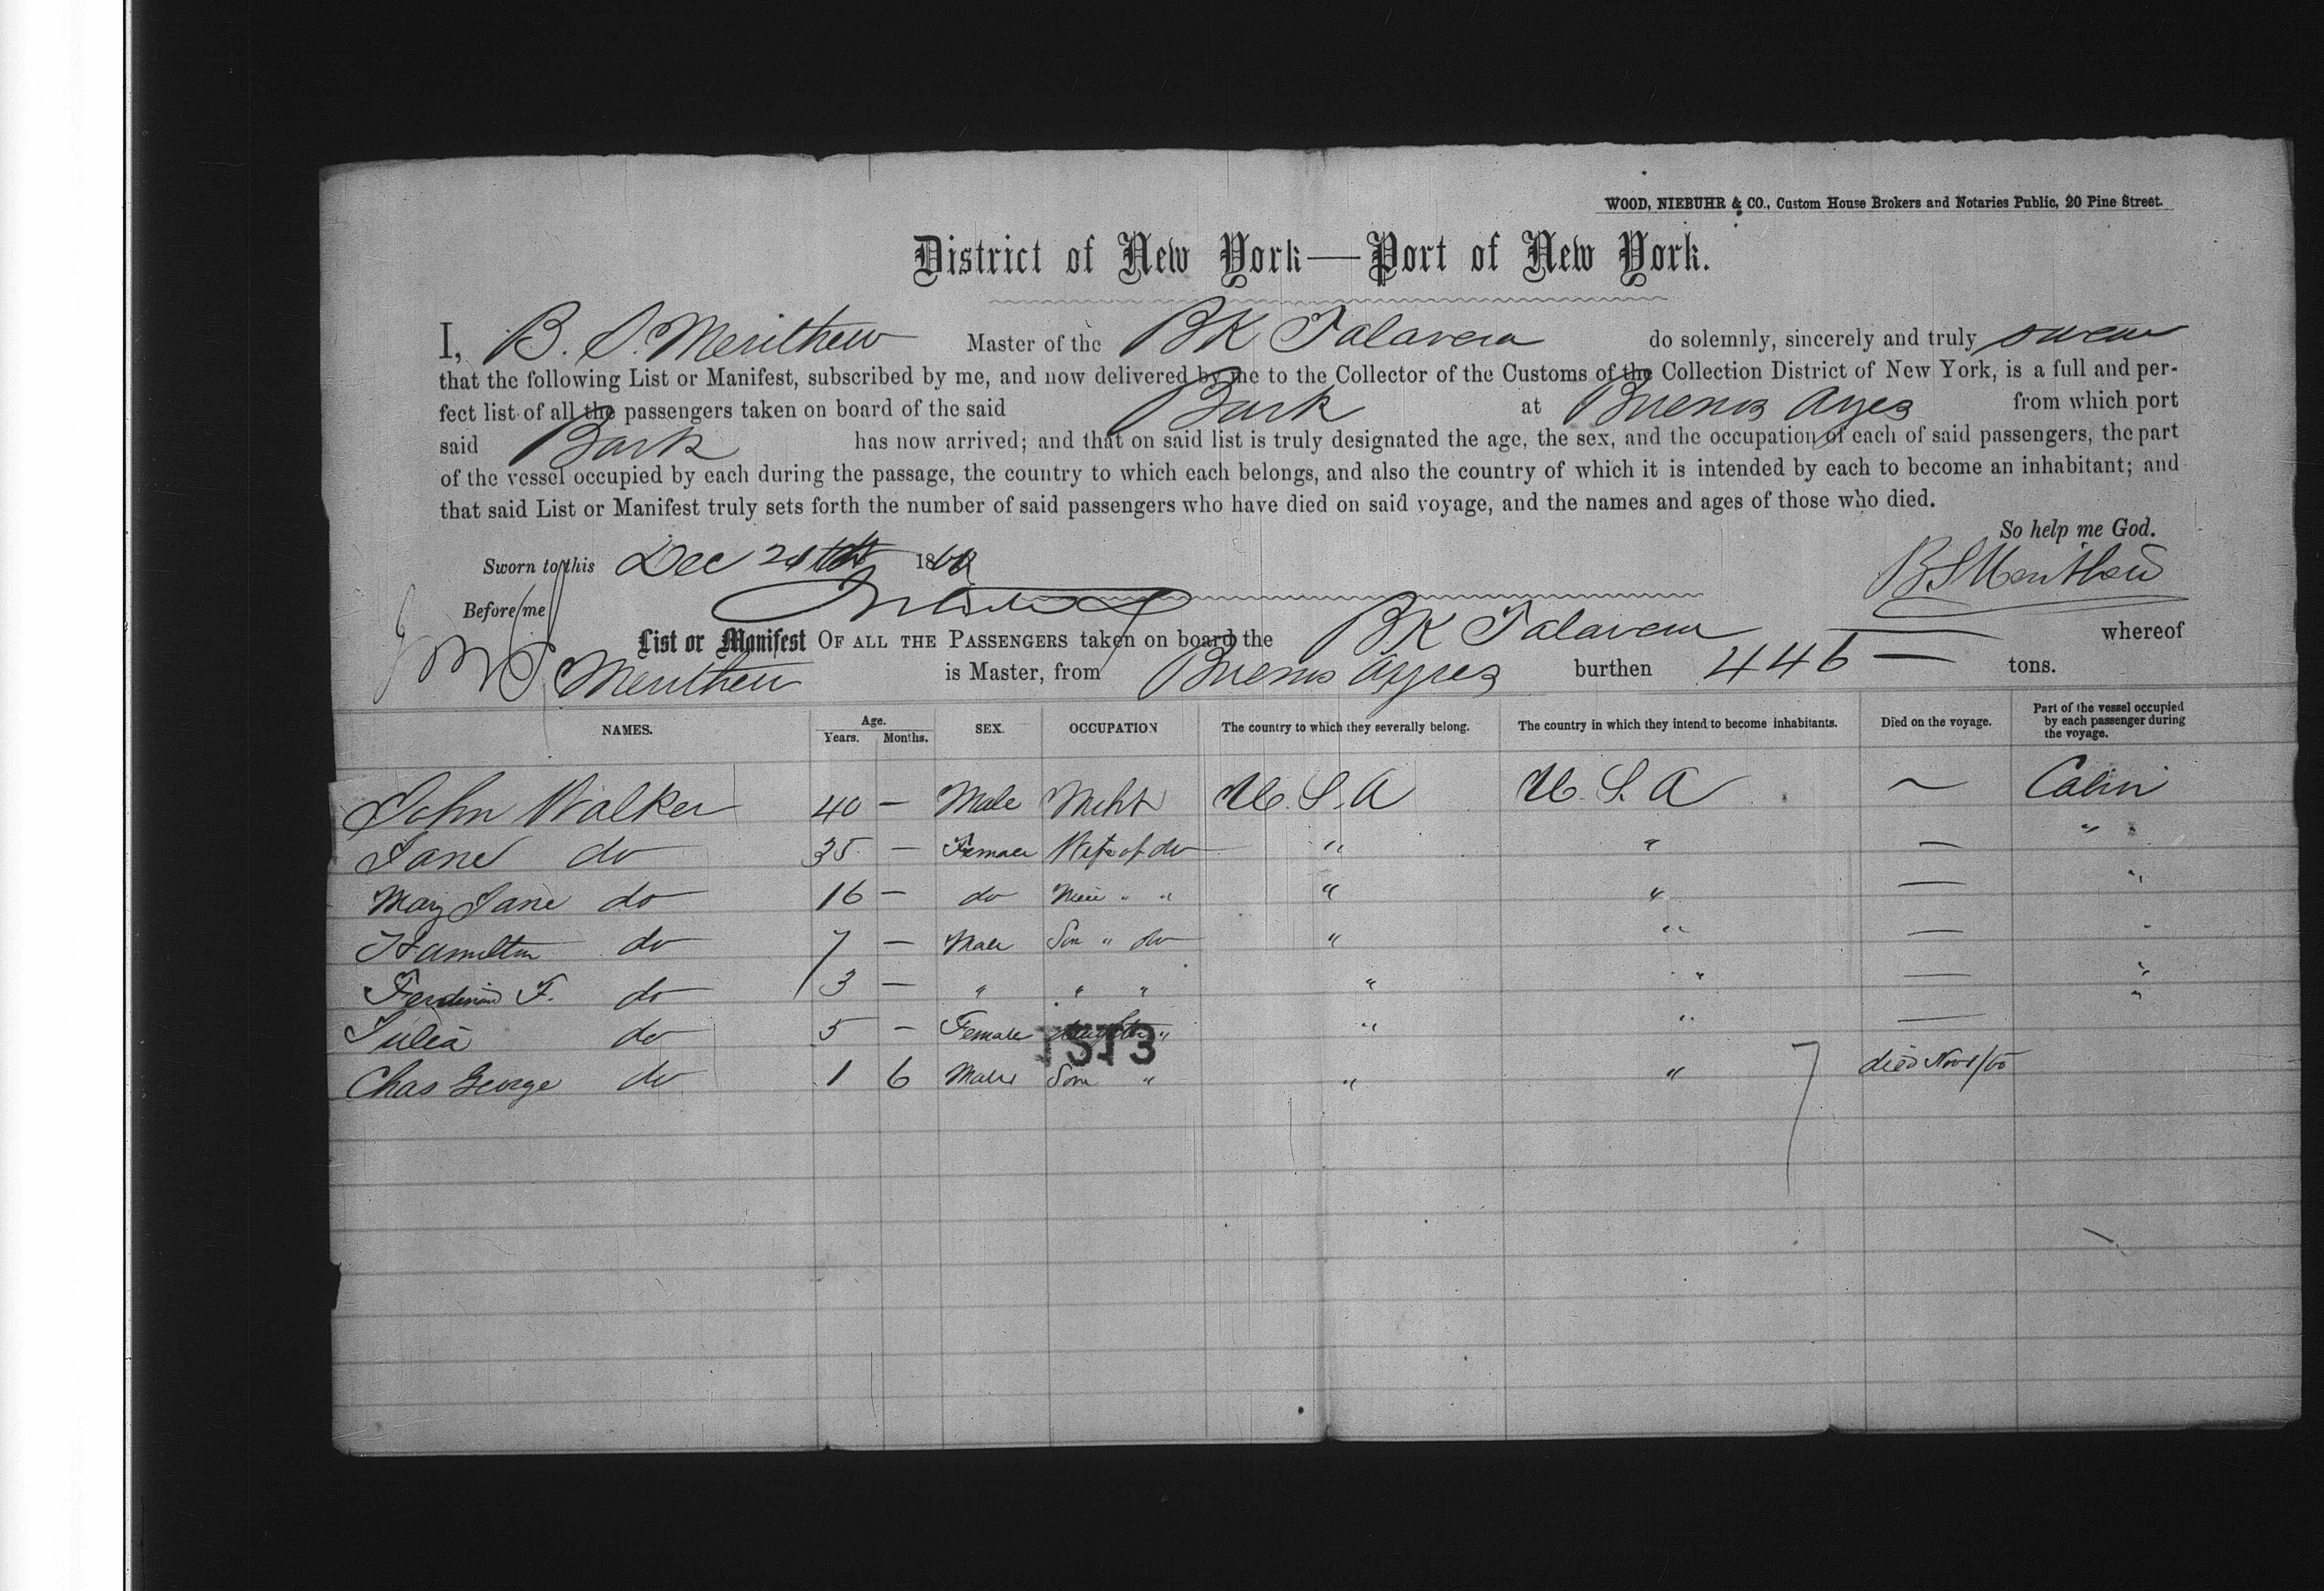 WOOD, NIEBUHR & CO., Custom House Brokers and Notaries Public, 20 Pine Street.
District of New York—Port of New York.
I, B. S. Merithew Master of the BK Talavera do solemnly, sincerely and truly swear
that the following List or Manifest, subscribed by me, and now delivered by me to the Collector of the Customs of the Collection District of New York, is a full and per-
fect list of all the passengers taken on board of the said Bark at Buenos Ayres from which port
said Bark has now arrived; and that on said list is truly designated the age, the sex, and the occupation of each of said passengers, the part
of the vessel occupied by each during the passage, the country to which each belongs, and also the country of which it is intended by each to become an inhabitant; and
that said List or Manifest truly sets forth the number of said passengers who have died on said voyage, and the names and ages of those who died.
So help me God.
Sworn to this Dec 1860 B S Merithew
Before me
List or Manifest OF ALL THE PASSENGERS taken on board the BK Talavera whereof
Merithew is Master, from Buenos Ayres burthen 446 — tons.
NAMES. Age. Years. Months. SEX. OCCUPATION The country to which they severally belong. The country in which they intend to become inhabitants. Died on the voyage. Part of the vessel occupied by each passenger during the voyage.
John Walker 40 — Male Mcht U.S.A U.S.A ~ Cabin
Jane do 35 — Female Wife of do " " — "
Mary Jane do 16 — do Niece " " " " — "
Hamilton do 7 — Male Son " do " " — "
Ferdinand F. do 3 — " " " " " — "
Julia do 5 — Female daughter " " " — "
1573
Chas George do 1 6 Male Son " " " died Nov /60